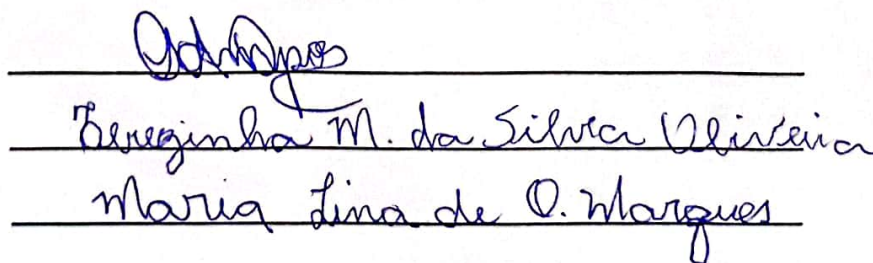 Terezinha M. da Silvia Oliveira
Maria Lina de O. Marques